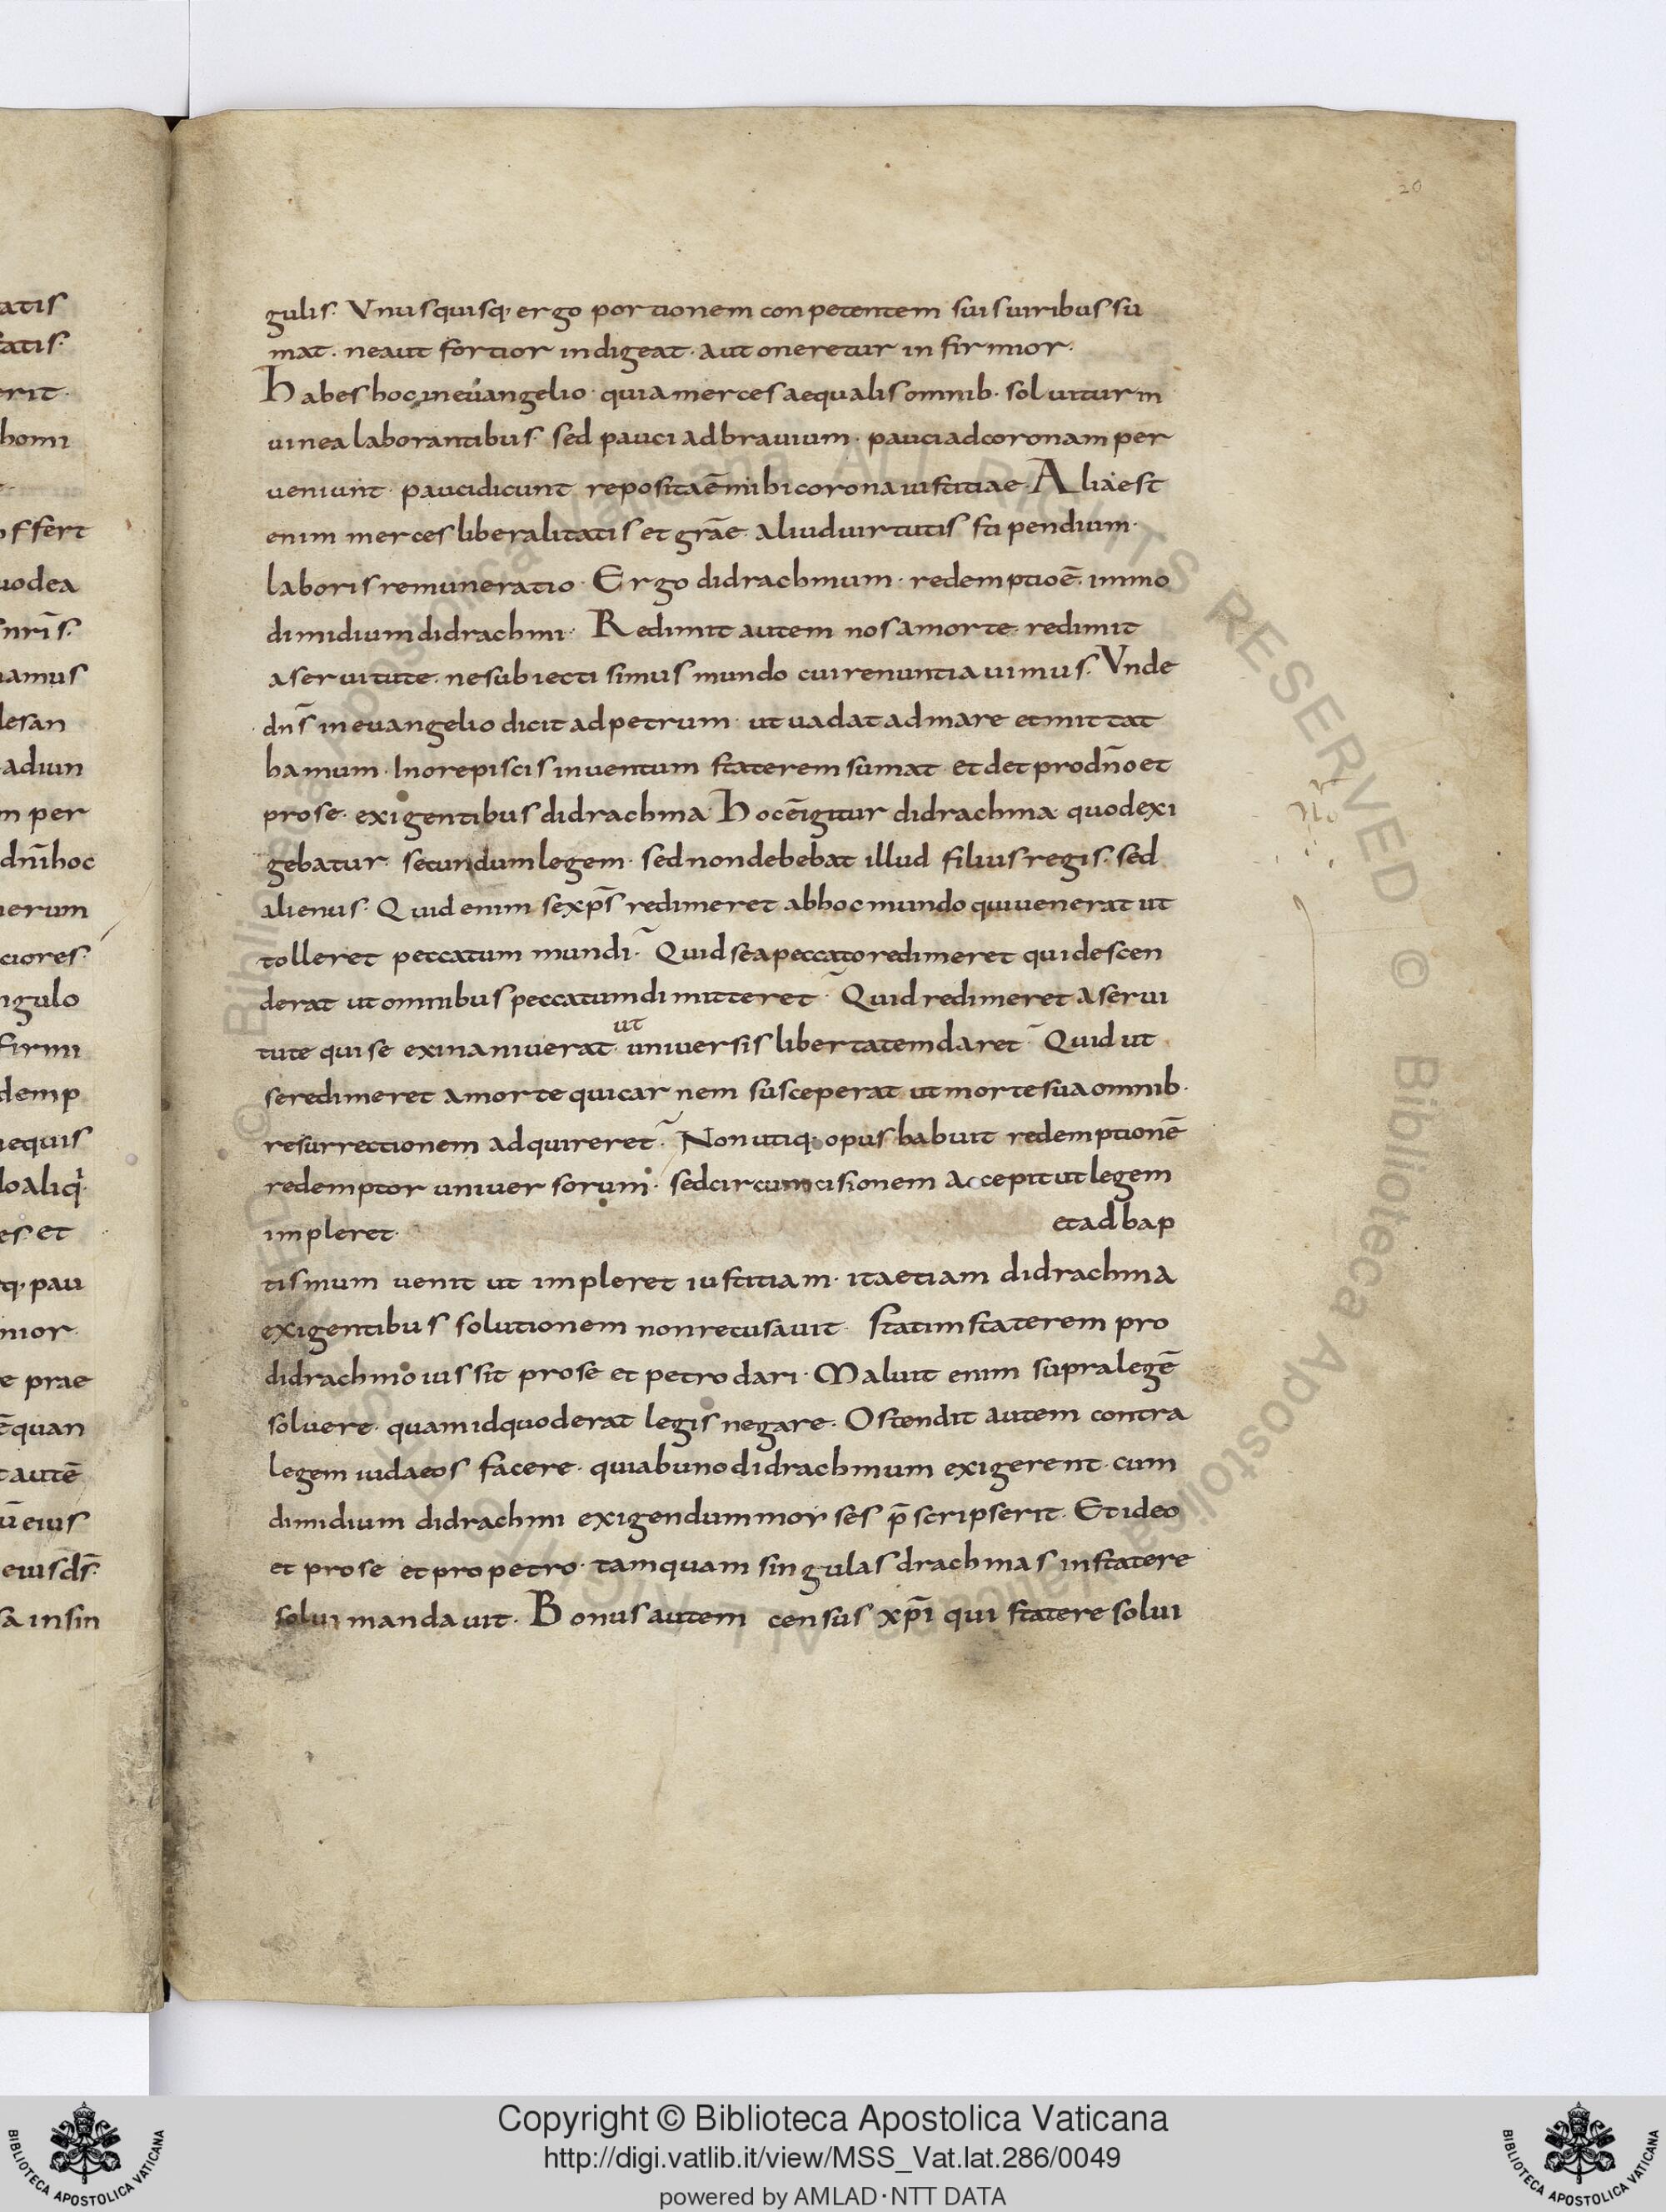 20
gulis. Vnusquisq; ergo portionem conpetentem suis uiribus su
mat. ne aut fortior indigeat. aut oneretur infirmior.
Habes hoc in euangelio. quia merces aequalis omnib. soluitur in
uinea laborantibus. sed pauci ad brauium. pauci ad coronam per
ueniunt. pauci dicunt reposita ē mihi corona iustitiae. Alia est
enim merces liberalitatis et grāe. aliud uirtutis stipendium.
laboris remuneratio. Ergo didrachmum. redemptio ē. immo
dimidium didrachmi. Redimit autem nos a morte. redimit
a seruitute. ne subiecti simus mundo cui renuntiauimus. Vnde
dn̄s in euangelio dicit ad petrum. ut uadat ad mare et mittat
hamum. In ore piscis inuentum staterem sumat. et det pro dn̄o et
pro se. exigentibus didrachma. Hoc ē igitur didrachma quod exi
gebatur secundum legem. sed non debebat illud filius regis. sed
alienus. Quid enim se xp̄s redimeret ab hoc mundo qui uenerat ut
tolleret peccatum mundi. Quid se a peccato redimeret qui descen
derat ut omnibus peccatum dimitteret. Quid redimeret a serui
ut
tute qui se exinaniuerat. uniuersis libertatem daret. Quid ut
se redimeret a morte qui carnem susceperat ut morte sua omnib.
resurrectionem adquireret. Non utiq. opus habuit redemptionē
redemptor uniuersorum. sed circumcisionem accepit ut legem
impleret. et ad bap
tismum uenit ut impleret iustitiam. ita etiam didrachma
exigentibus solutionem non recusauit. Statim staterem pro
didrachmo iussit pro se et petro dari. Maluit enim supra legē
soluere. quam id quod erat legis negare. Ostendit autem contra
legem iudaeos facere. quia b uno didrachmum exigerent. cum
dimidium didrachmi exigendum moyses p̄scripserit. Et ideo
et pro se et pro petro. tamquam singulas drachmas in statere
solui mandauit. Bonus autem census xp̄i qui statere solui
atis
tatis.
erit.
homi
offert
uodea
nr̄is.
uamus
lesan
adiun
m per
dn̄i hoc
uerum
ciores.
ngulo
firmi
demp
equis
lo aliq
es. et
q; pau
mior.
e prae
ē quan
autē
ū eius
eius ds̄.
sa in sin
© Biblioteca Apostolica Vaticana ALL RIGHTS RESERVED © Biblioteca Apostolica Vaticana ALL RIGHTS RESERVED
Copyright © Biblioteca Apostolica Vaticana
http://digi.vatlib.it/view/MSS_Vat.lat.286/0049
powered by AMLAD·NTT DATA
BIBLIOTECA APOSTOLICA VATICANA
BIBLIOTECA APOSTOLICA VATICANA